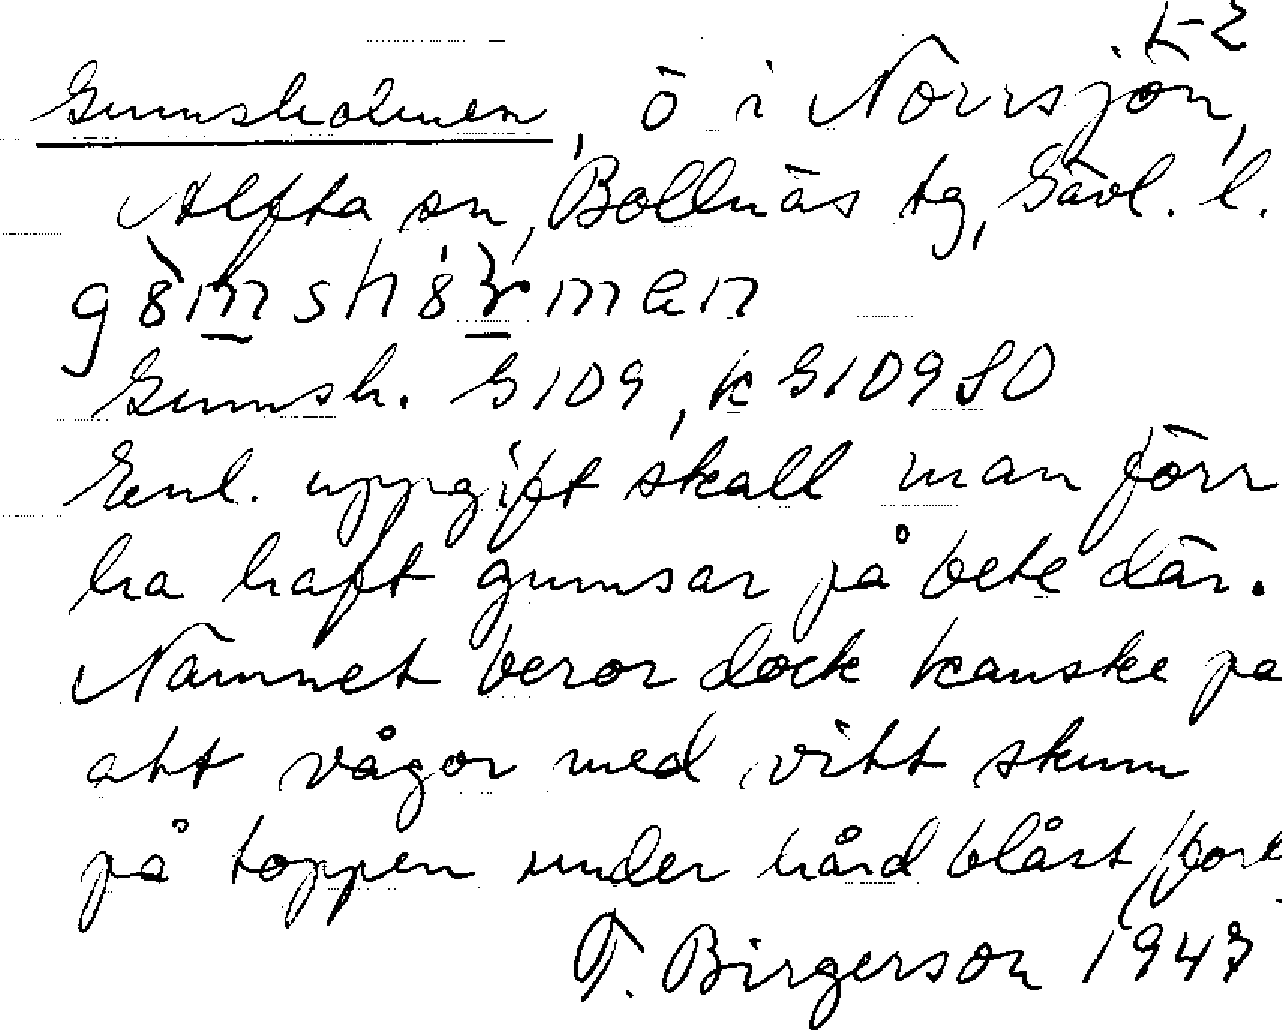 k-2
Gumsholmen, ö i Norrsjön,
Alfta sn, Bollnäs tg, Gävl. l.
Gumsh. G109, k G109SO
Enl. uppgift skall man förr
ha haft gumsar på bete där.
Namnet beror dock kanske på
att vågor med vitt skum
på toppen under hård blåst
T. Birgerson 1947